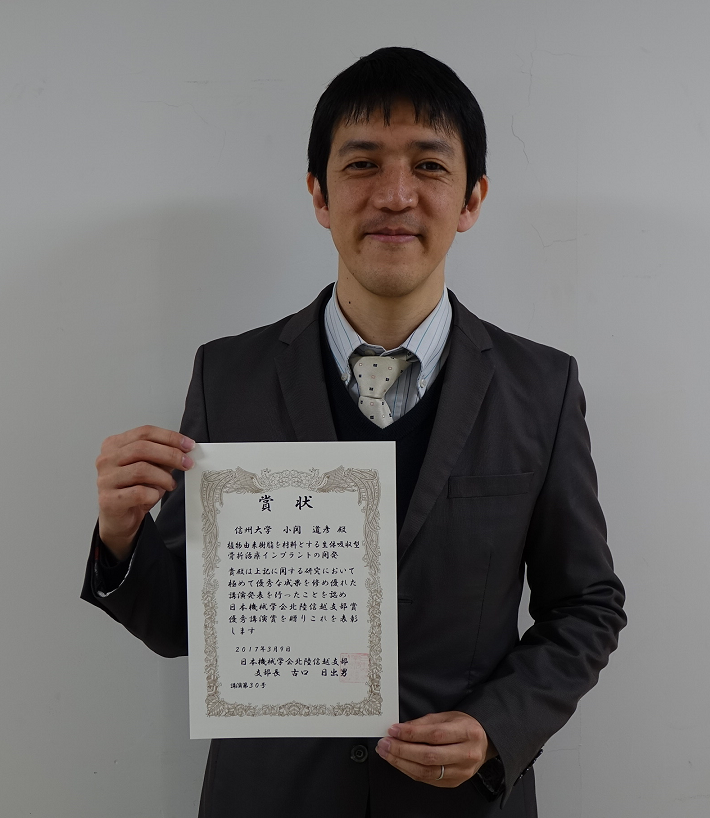 賞状
信州大学 小関 道彦 殿
植物由来樹脂を材料とする生体吸収型
骨折治療インプラントの開発
貴殿は上記に関する研究において
極めて優秀な成果を修め優れた
講演発表を行ったことを認め
日本機械学会北陸信越支部賞
優秀講演賞を贈りこれを表彰
します
2017年3月9日
日本機械学会北陸信越支部
支部長 古口 日出男
講演第30号